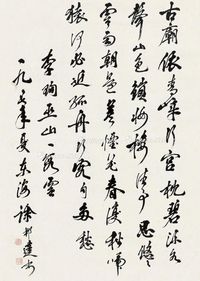 古廟依青嶂行宮枕碧流水
聲山色鎖妝樓往事思悠〻
雲雨朝還暮煙花春復秋啼
猿何必近孤舟行客自多愁
李珣巫山一段雲
一九年夏東海徐邦達書